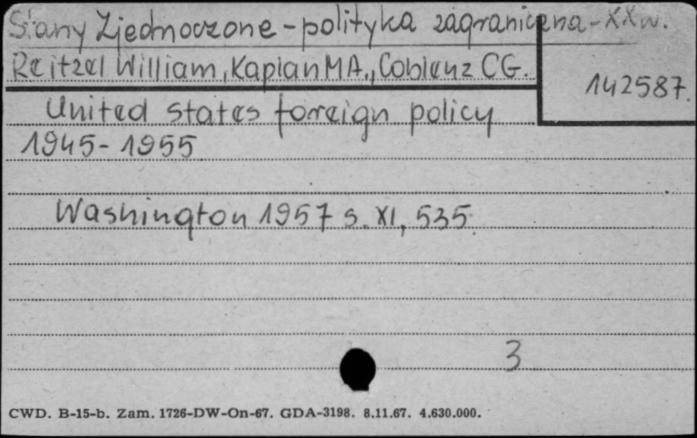 Stany Zjednoczone - polityka zagraniczna - XX w.
Reitzel William, Kaplan MA., Coblenz CG.
142587.
United states foreign policy
1945-1955
Washington 1957 s. XI, 535.
3
CWD. B-15-b. Zam. 1726-DW-On-67. GDA-3198. 8.11.67. 4.630.000.